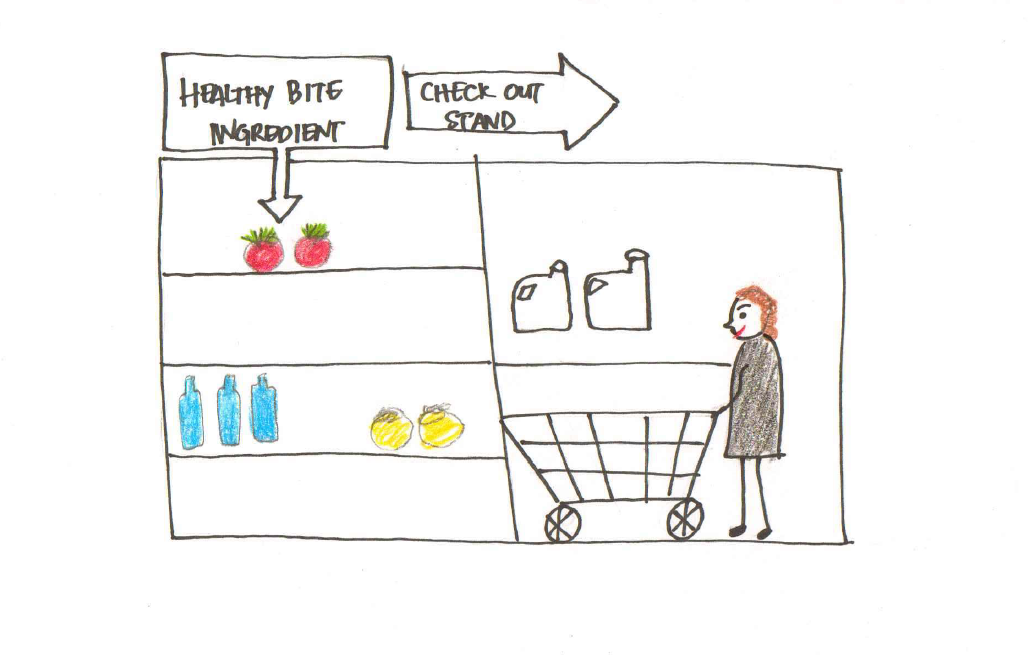 HEALTHY BITE
INGREDIENT
CHECK OUT
STAND